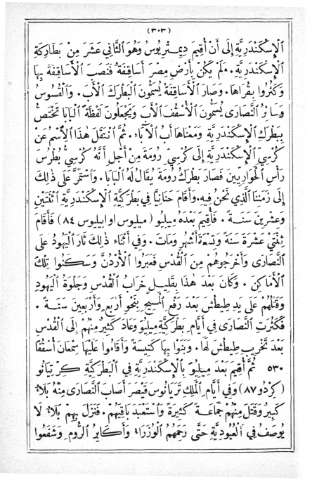 (٣٠٣)
الإسكندرية إلى أن أقيم ديمتريوس وهو الثاني عشر من بطاركة
الإسكندرية. ولم يكن بأرض مصر أساقفة فنصب الأساقفة بها
وكثروا بقراها. وصار الأساقفة يسمون البطرك الأب. والقسوس
وسائر النصارى يسمون الأسقف الأب ويجعلون لفظة البابا تختص
ببطرك الإسكندرية ومعناها أب الآباء. ثم انتقل هذا الاسم عن
كرسي الإسكندرية إلى كرسي رومة من أجل أنه كرسي بطرس
رأس الحواريين فصار بطرك رومة يقال له البابا. واستمر على ذلك
إلى زمننا الذي نحن فيه. وأقام حنانيا في بطركية الإسكندرية اثنتين
وعشرين سنة. فأقيم بعده ميليو (ميلوس او ابيليوس ٨٤) فأقام
ثنتي عشرة سنة وتسعة أشهر ومات. وفي أثناء ذلك ثار اليهود على
النصارى وأخرجوهم من القدس فعبروا الأردن وسكنوا تلك
الأماكن. وكان بعد هذا بقليل خراب القدس وجلوة اليهود
وقتلهم على يد طيطش بعد رفع المسيح بنحو أربع وأربعين سنة.
فكثرت النصارى في أيام بطركية ميليو وعاد كثير منهم إلى القدس
بعد تخريب طيطش لها. وبنوا بها كنيسة وأقاموا عليها سمعان أسقفا
٥٣٠ ثم أقيم بعد ميليو بالإسكندرية في البطركية كرتيانو
(كردو ٨٧) وفي أيام الملك تريانوس قيصر أصاب النصارى منه بلاء
كبير وقتل منهم جماعة كثيرة واستعبد باقيهم. فنزل بهم بلاء لا
يوصف في العبودية حتى رحمهم الوزراء وأكابر الروم وشفعوا